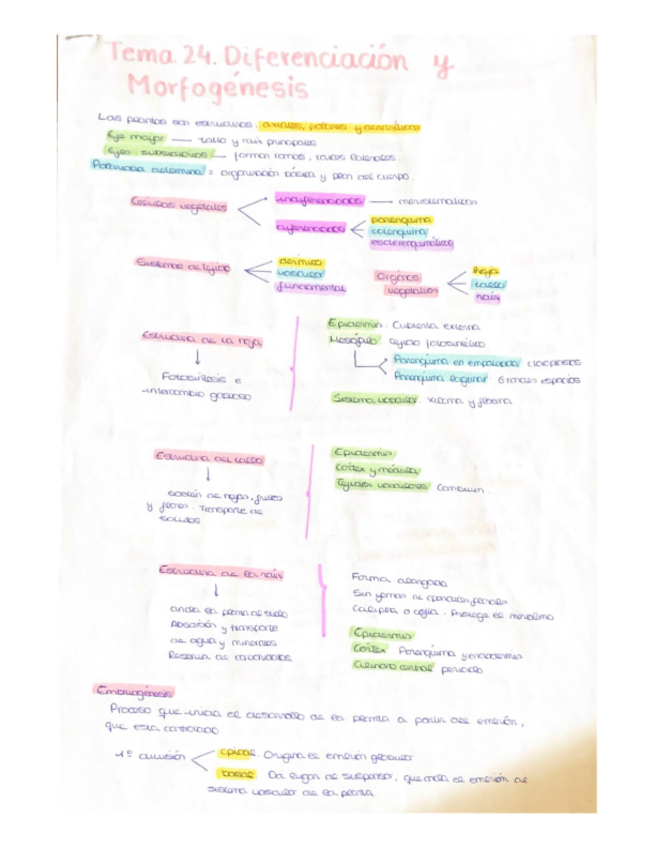 Tema 24. Diferenciación y
Morfogénesis
Las plantas son estructuras: axiales, polares y
Eje mayor — tallo y raíz principales
Ejes subsidiarios — forman ramas, raíces laterales.
Polaridad determina = organización básica y plan del cuerpo.
Tejidos vegetales
indiferenciados — meristemáticos
diferenciados
parénquima
colénquima
esclerenquimático
Sistemas de tejido
dérmico
vascular
fundamental
Órganos
vegetales
hoja
tallo
raíz
Estructura de la hoja
Fotosíntesis e
intercambio gaseoso
Epidermis. Cubierta externa
Mesófilo. Tejido fotosintético
Parénquima en empalizada cloroplastos
Parénquima lagunar. espacios
Sistema vascular. xilema y floema
Estructura del tallo
Sostén de hojas, frutos
y flores. Transporte de
solutos
Epidermis
Cortex y médula
Tejidos vasculares Cambium.
Estructura de la raíz
ancla la planta al suelo
Absorción y transporte
de agua y minerales
Reserva de carbohidratos
Forma alargada
Sin yemas ni
Caliptra o cofia. Protege el meristemo
Epidermis
Cortex Parénquima y endodermis
Cilindro central periciclo
Embriogénesis
Proceso que inicia el desarrollo de la planta a partir del embrión,
que esta
1ª división
apical. Origina el embrión globular
basal. Da lugar al suspensor, que ancla el embrión al
sistema vascular de la planta